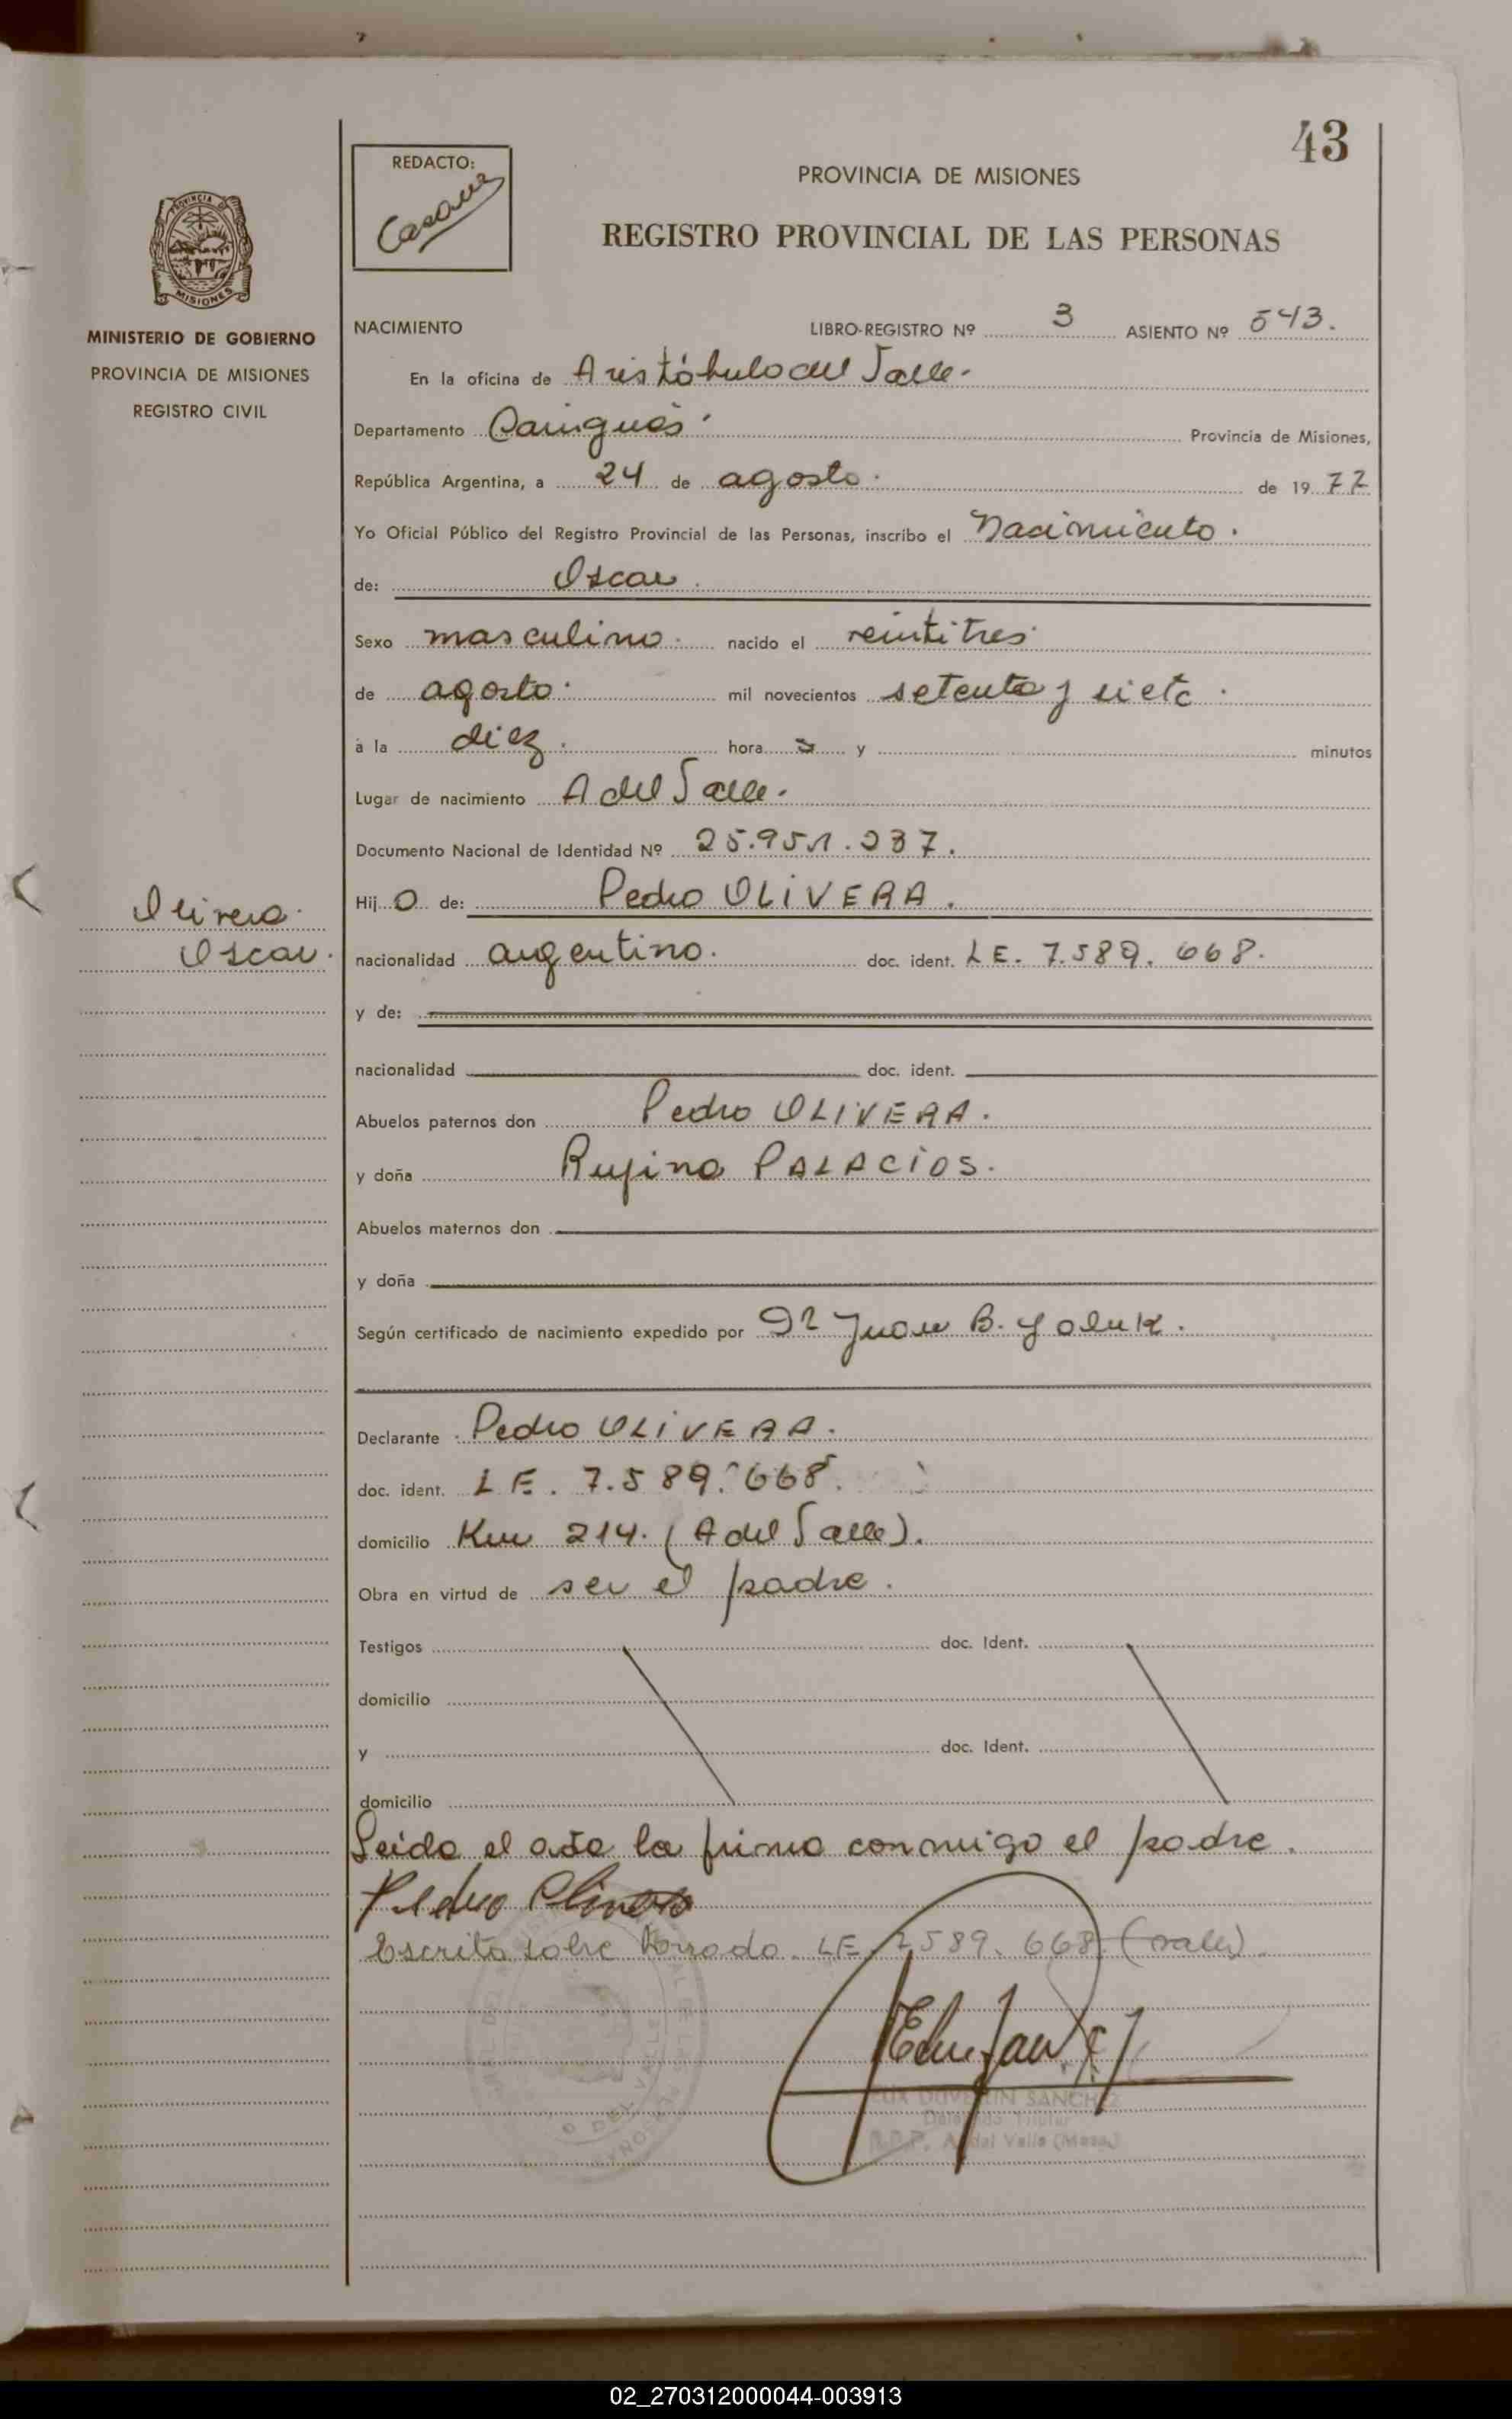 43
REDACTO:
PROVINCIA DE MISIONES
REGISTRO PROVINCIAL DE LAS PERSONAS
PROVINCIA
MISIONES
MINISTERIO DE GOBIERNO
PROVINCIA DE MISIONES
REGISTRO CIVIL
NACIMIENTO LIBRO-REGISTRO Nº 3 ASIENTO Nº 543.
En la oficina de Aristóbulo del Valle.
Departamento Cainguás Provincia de Misiones,
República Argentina, a 24 de agosto. de 1977
Yo Oficial Público del Registro Provincial de las Personas, inscribo el Nacimiento.
de: Oscar.
Sexo masculino. nacido el veintitres
de agosto. mil novecientos setenta y siete.
a la diez. hora s y minutos
Lugar de nacimiento A del Valle.
Documento Nacional de Identidad Nº 25.951.237.
Hij o de: Pedro OLIVERA.
Olivera.
Oscar.
nacionalidad argentino. doc. ident. LE. 7.589.668.
y de:
nacionalidad doc. ident.
Abuelos paternos don Pedro OLIVERA.
y doña Rufina PALACIOS.
Abuelos maternos don
y doña
Según certificado de nacimiento expedido por Juan B.
Declarante Pedro OLIVERA.
doc. ident. LE. 7.589.668.
domicilio Km 214. (A del Valle).
Obra en virtud de ser el padre.
Testigos doc. Ident.
domicilio
y doc. Ident.
domicilio
Leida el acta la firma conmigo el padre.
Pedro Olivera
Escrito sobre borrado. LE 7589.668 (vale).
SANCHEZ
Titular
A. del Valle (Mnes.)
02_270312000044-003913